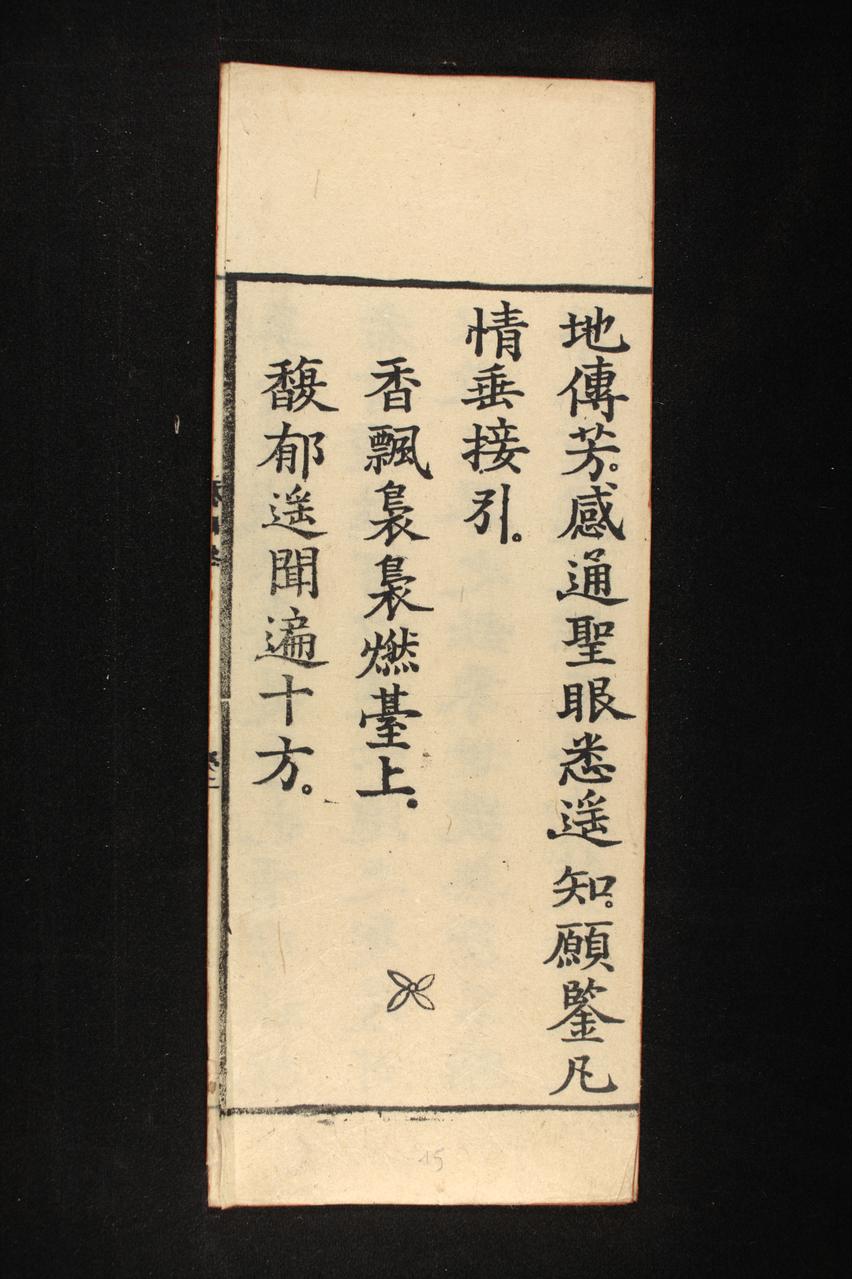 地傳芳。感通聖眼悉遥知。願鑒凡
情垂接引。
香飄裊裊燃臺上。
馥郁遥聞遍十方。
15